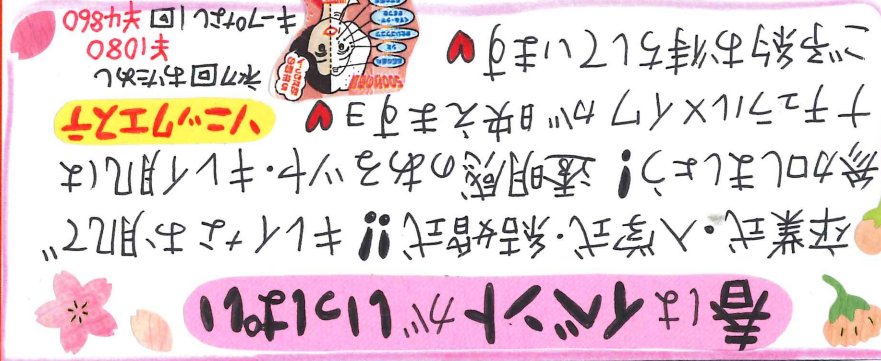 春はイベントがいっぱい
卒業式・入学式・結婚式!! キレイなお肌で
参加しましょう! 透明感のあるツヤ・キレイ肌は
ナチュラルメイクが映えますヨ♥
ご予約お待ちしています♥
ソニックエステ
初回おためし
¥1080
キープなし1回 ¥4860